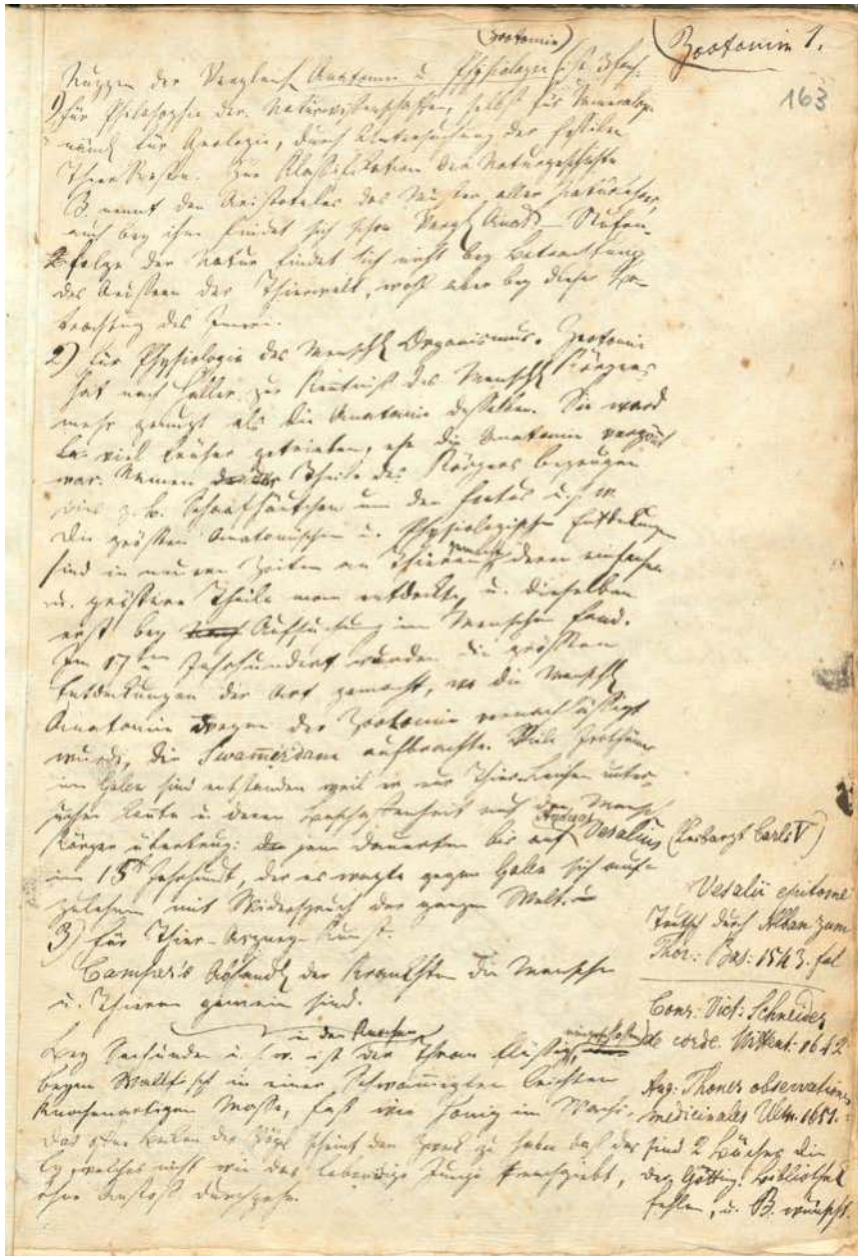 (Zootomie)
Zootomie 1.
163
Nuzzen der Vergleich. Anatomie u. Physiologie ist 3fach.
1) für Philosophie der Naturwissenschaften, selbst für Mineralog.
nämlich für Geologie, durch Untersuchung der fossilen
Thier Reste. Zur Klassifikation der Naturgeschichte
B. nennt den Aristoteles das Muster aller Naturforscher,
auch bey ihm findet sich schon Vergl. Anat. – Stufen-
folge der Natur findet sich nicht bey Betrachtung
des Äussern der Thierwelt, wohl aber bey dieser Be-
trachtung des Innern.
2) für Physiologie des Menschl. Organismus. Zootomie
hat nach Haller zur Kentniß des Menschl. Körpers
mehr genuzt als die Anatomie desselben. Sie ward
viel früher getrieben, ehe die Anatomie vergönnt
war. Namen der Theile des Körpers bezeugen
dies z. B. Schaafhäutchen um den Foetus u. s. w.
Die größten Anatomischen u. Physiologischen Entdekkungen
sind in neuern Zeiten an Thieren gemacht deren einfachere
u. grössere Theile man entdeckte, u. dieselben
erst bey Aufsuchung im Menschen fand.
Im 17ten Jahrhundert wurden die größten
Entdeckungen der Art gemacht, wo die Menschl.
Anatomie wegen der Zootomie vernachlässigt
wurde, die Swam̄erdam aufbrachte. Viele Irrthümer
im Galen sind entstanden weil er nur Thier Leichen unter-
suchen konnte u. deren Beschaffenheit auf den Mensch.
Körper übertrug: jene dauerten bis auf Andreas Vesalius (Leibarzt Carls V)
im 15t Jahrhundt, der es wagte gegen Galen sich auf-
zulehnen mit Widerspruch der ganzen Welt.
3) für Thier-Arzney-Kunst.
Camper's Abhandl. der Krankhten die Menschen
u. Thieren gemein sind.
Bey Seehunden u. s. w. ist der Thran flüssig in den Knochen
beym Wallfisch in einer Schwam̄igten leichten
knochenartigen Masse, fast wie Honig im Wachs.
Das der Vögel scheint den Zwek zu haben daß das
Ey, welches nicht wie das lebendige Junge nachgiebt,
ohne Anstoß durchgehe.
Vesalii epitome
Teutsch durch Alban zum
Thor: Bas: 1543. fol
Conr: Vict: Schneider
de corde. Wittenb: 1642
Aug: Thoner observationes
medicinales Ulm. 1651.
sind 2 Bücher die
der Götting: Bibliothek
fehlen, u. B. wünscht.